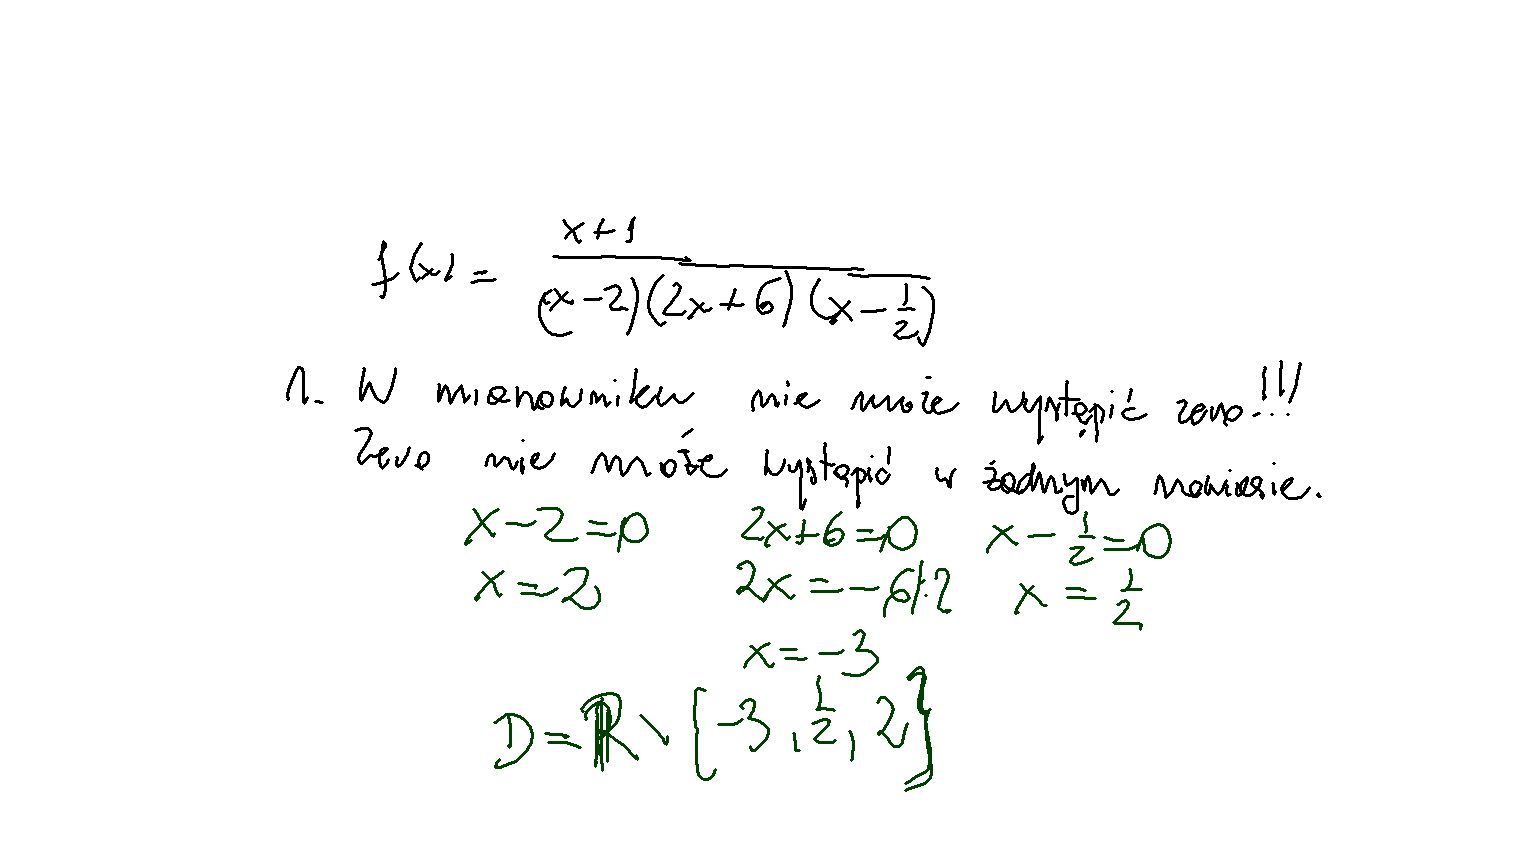 f(x) = x+1 / (x-2)(2x+6)(x-1/2)
1. W mianowniku nie może wystąpić zero!!!
Zero nie może wystąpić w żadnym nawiasie.
x-2=0 2x+6=0 x-1/2=0
x=2 2x=-6/:2 x=1/2
x=-3
D=ℝ\{-3, 1/2, 2}